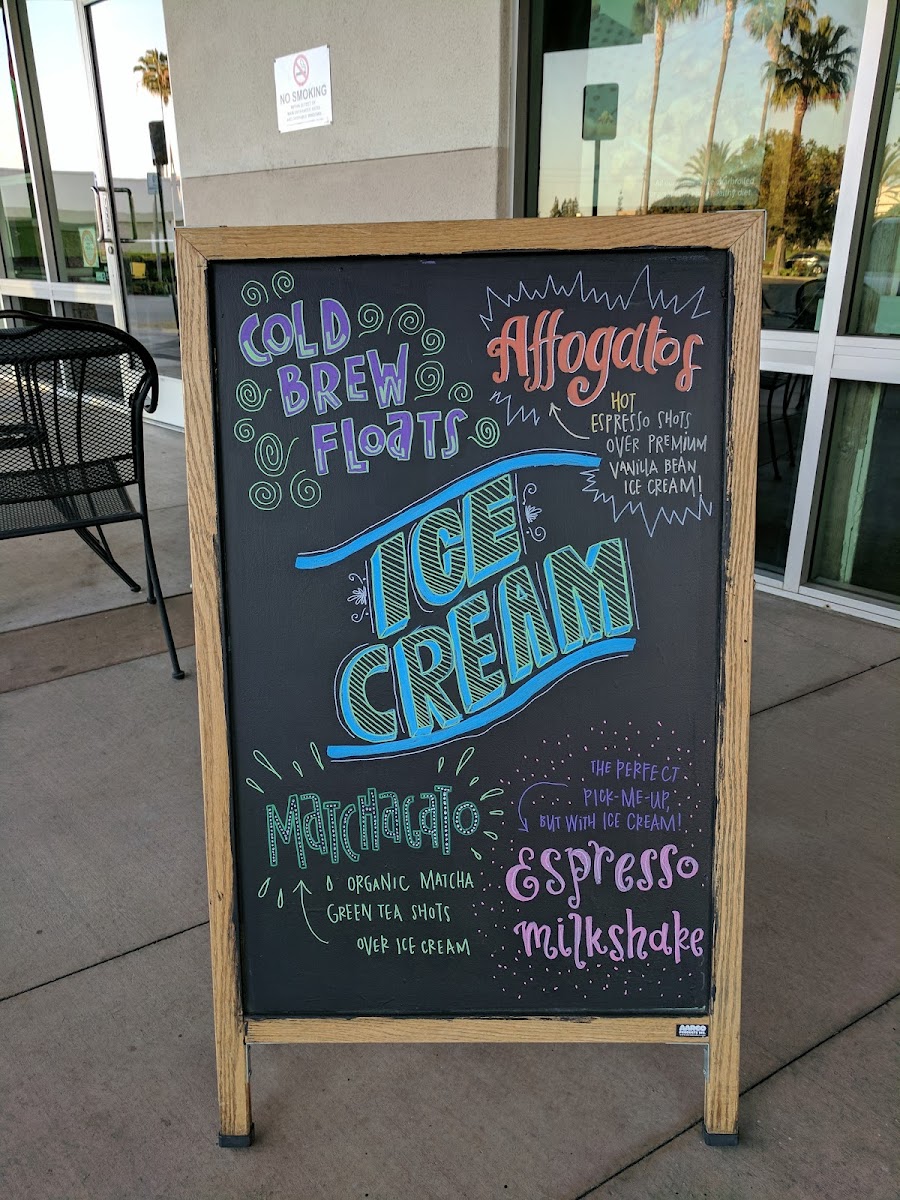 NO SMOKING
COLD
BREW
FLOATS
Affogatos
HOT
ESPRESSO SHOTS
OVER PREMIUM
VANILLA BEAN
ICE CREAM!
ICE
CREAM
MATCHAGATO
ORGANIC MATCHA
GREEN TEA SHOTS
OVER ICE CREAM
THE PERFECT
PICK-ME-UP,
BUT WITH ICE CREAM!
Espresso
milkshake
AARCO